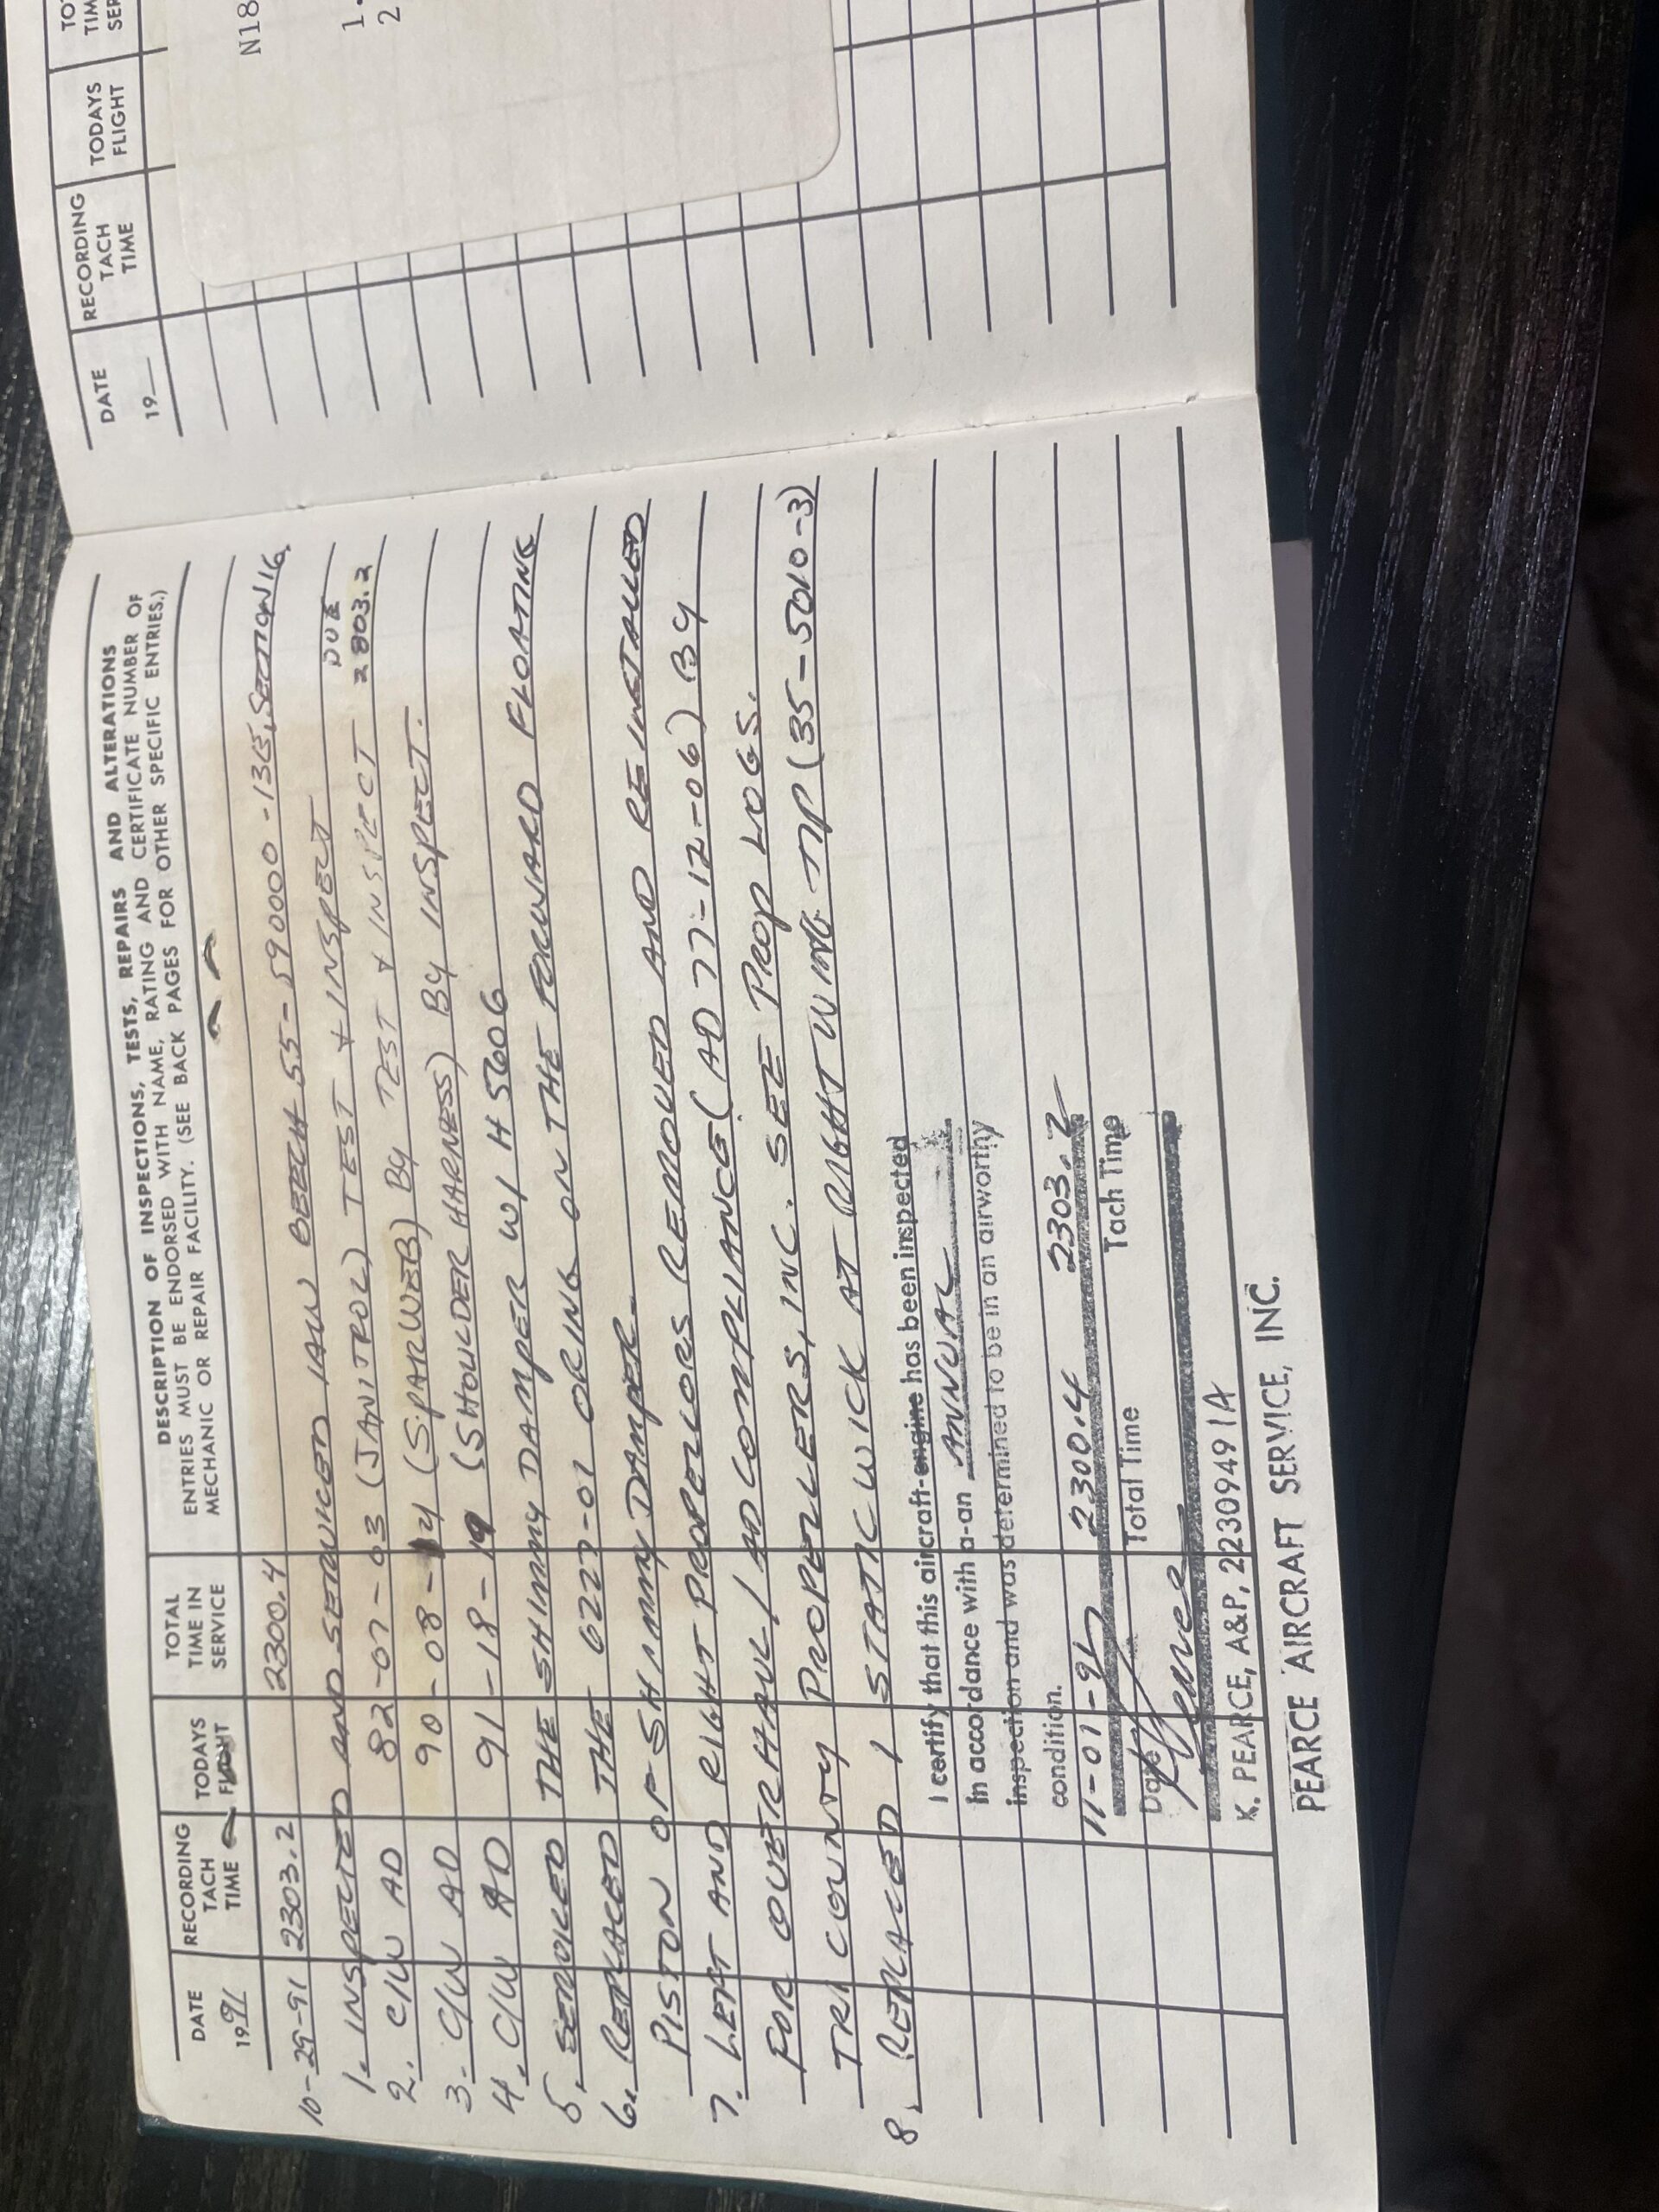 DESCRIPTION OF INSPECTIONS, TESTS, REPAIRS AND ALTERATIONS
ENTRIES MUST BE ENDORSED WITH NAME, RATING AND CERTIFICATE NUMBER OF
MECHANIC OR REPAIR FACILITY. (SEE BACK PAGES FOR OTHER SPECIFIC ENTRIES.)
DATE
19 91
RECORDING
TACH
TIME
TODAYS
FLIGHT
TOTAL
TIME IN
SERVICE
10-29-91 2303.2 2300.4
1. INSPECTED AND SERVICED IAW BEECH 55-590000-13 SECTION 16.
2. C/W AD 82-07-03 (JANITROL) TEST & INSPECT DUE
3. C/W AD 90-08-14 (SPAR WEB) BY TEST & INSPECT 2803.2
4. C/W AD 91-18-19 (SHOULDER HARNESS) BY INSPECT.
5. SERVICED THE SHIMMY DAMPER W/ H5606
6. REPLACED THE 6227-01 ORING ON THE FORWARD FLOATING
PISTON OF SHIMMY DAMPER.
7. LEFT AND RIGHT PROPELLORS REMOVED AND REINSTALLED
FOR OVERHAUL / AD COMPLIANCE (AD 77-12-06) BY
TRI COUNTY PROPELLERS, INC. SEE PROP LOGS.
8. REPLACED 1 STATIC WICK AT RIGHT WING TIP (35-5010-3)
I certify that this aircraft-engine has been inspected
in accordance with a-an ANNUAL
inspection and was determined to be in an airworthy
condition.
11-01-91 2300.4 2303.2
Date Total Time Tach Time
K. PEARCE, A&P, 223094911A
PEARCE AIRCRAFT SERVICE, INC.
DATE
19
RECORDING
TACH
TIME
TODAYS
FLIGHT
N18
1.
2